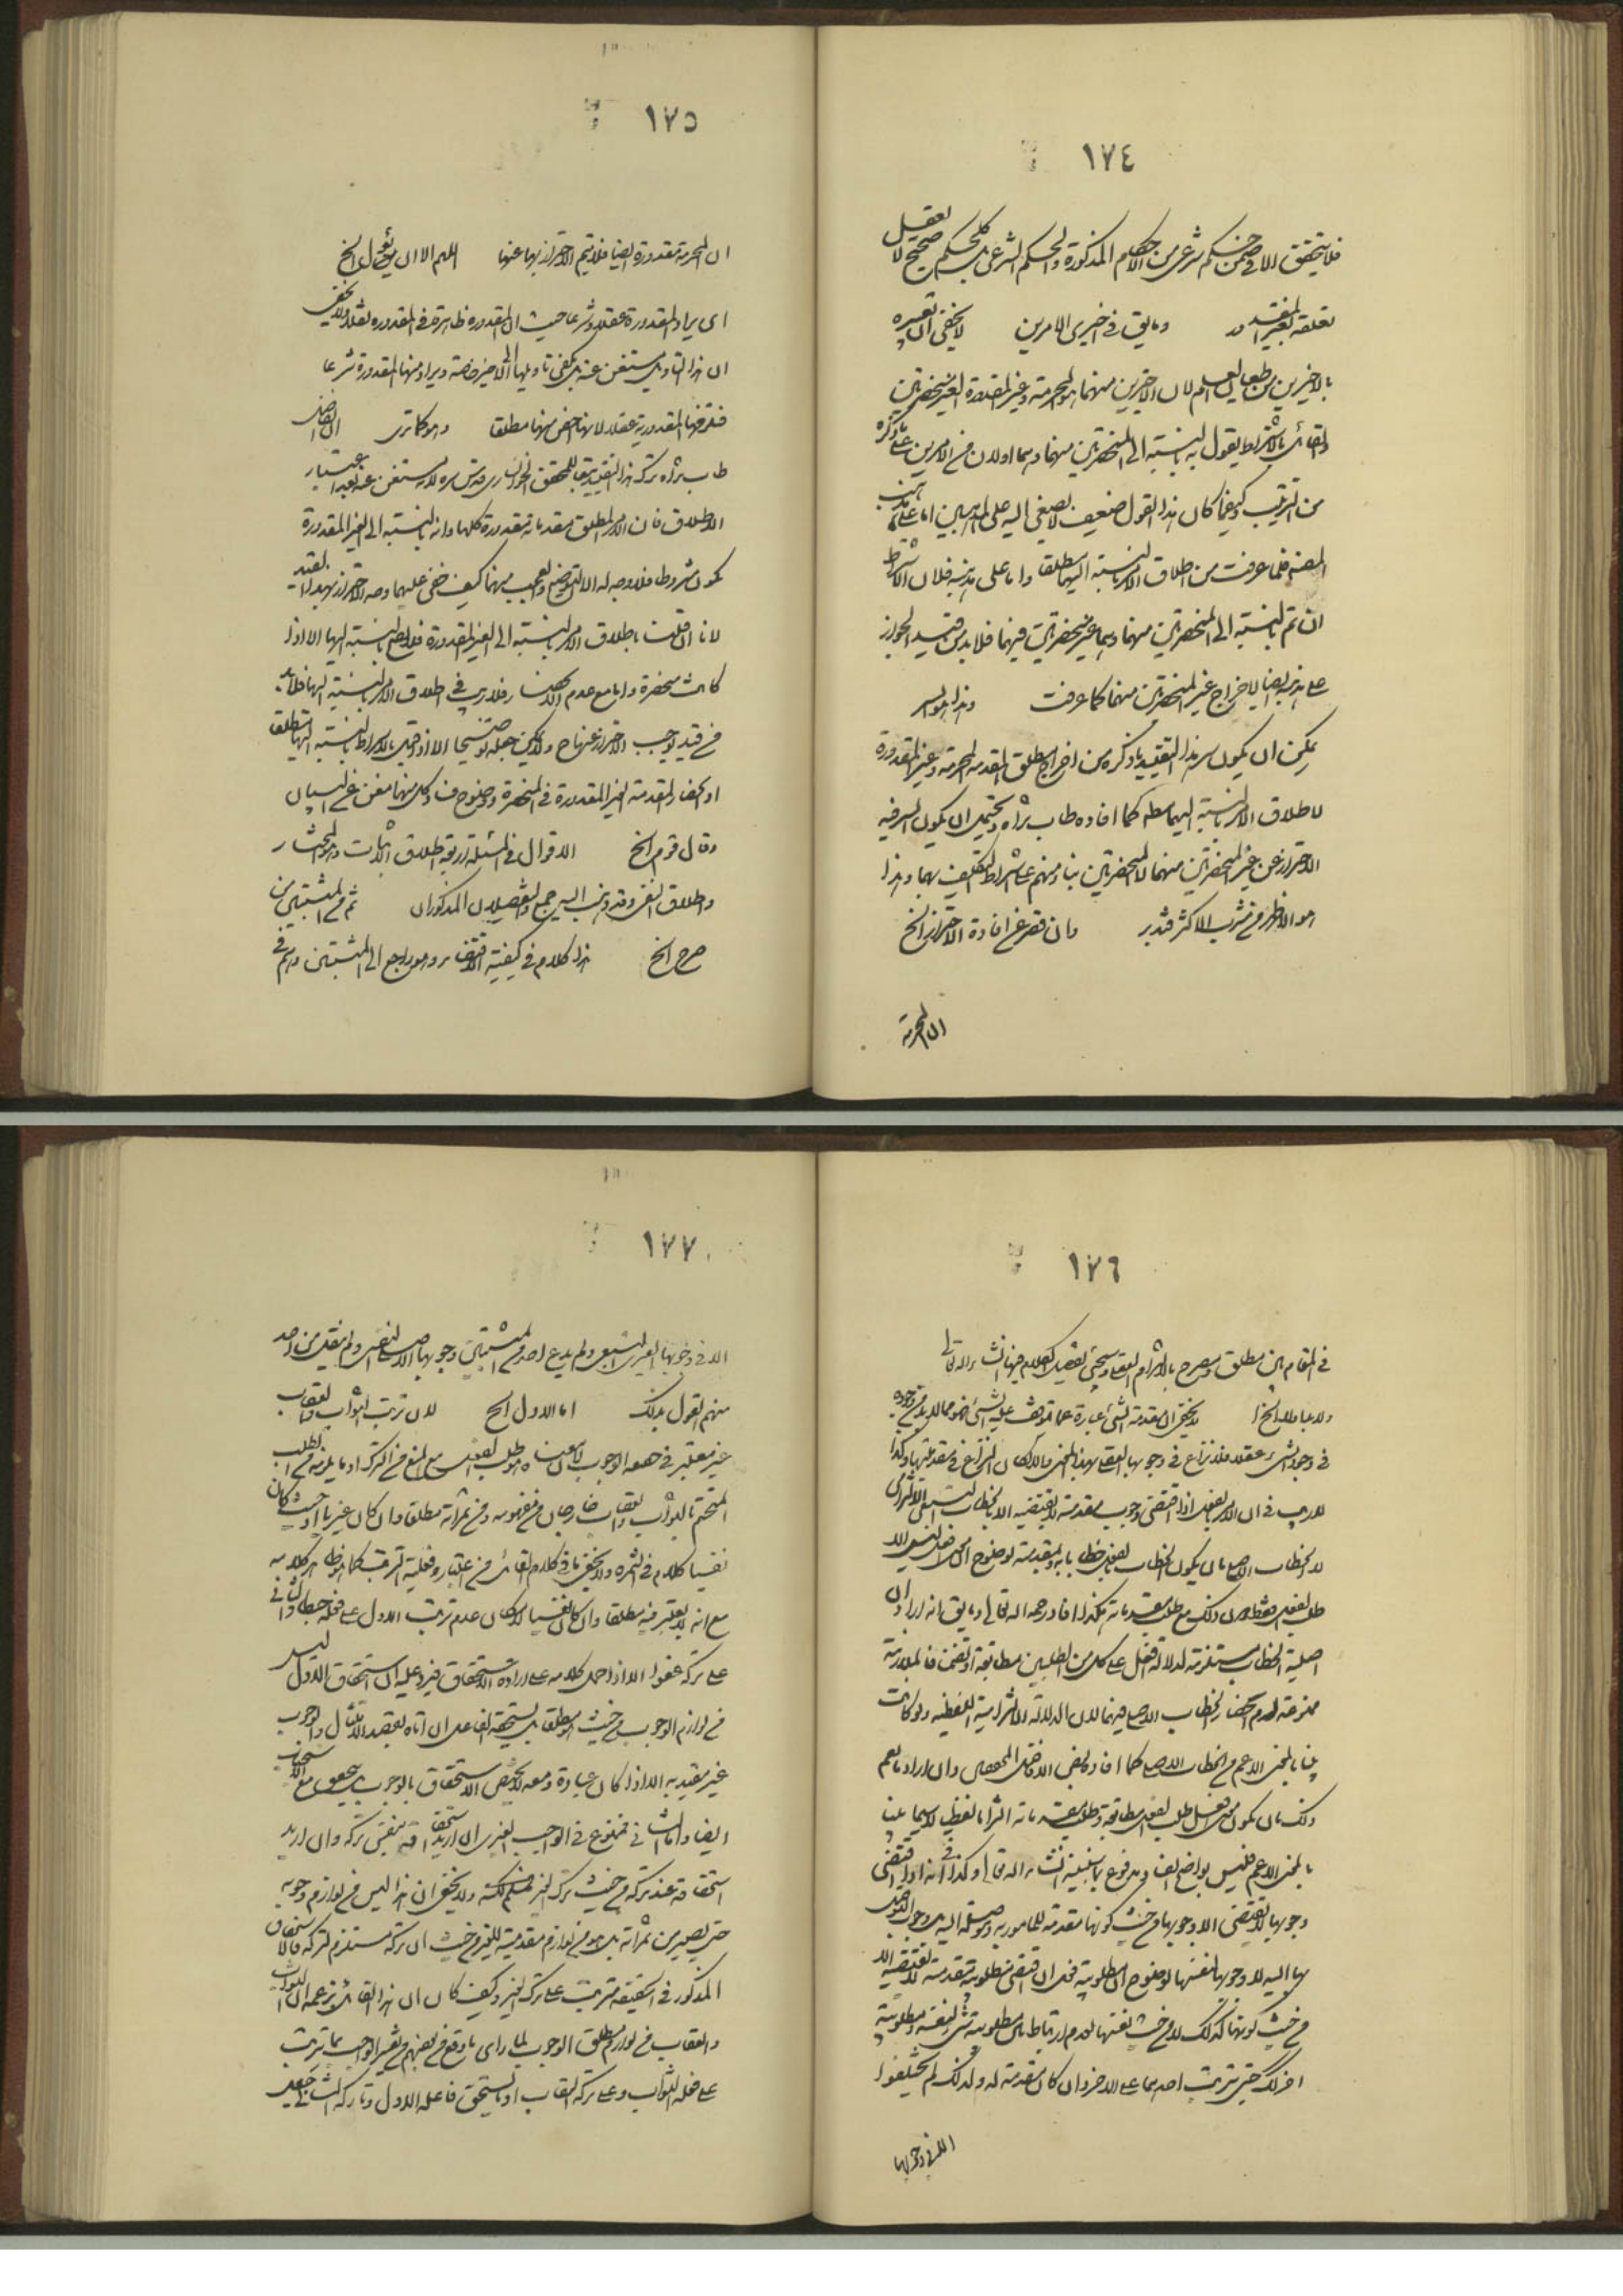 ١٧٤
فلا يتحقق الا في ضمن حكم شرعى من الاحكام المذكورة والحكم الشرعى بل كل حكم صحيح لا يعقل
تعلقه بغير المقدور وما بق في اخيرى الامرين لا يخفى ان تعبيره
بالاخيرين لان الاخيرين منهما هو المحرمة وغير المقدورة الغير المنحصرتين
بالاشتراط يقول به بالنسبة الى المنحصرتين منهما على ما ذكره
من الترتيب وكيفما كان هذا القول ضعيف لا يصغى اليه على المذهبين اما على مذهب
المصنف فلما عرفت من اطلاق الامر بالنسبة اليهما مطلقا واما على مذهبه فلان الاشتراط
ان تم بالنسبة الى المنحصرتين منهما وبما غير منحصرتين فيهما فلا بد من قيد الجواز
على مذهبه ايضا لاخراج غير المنحصرتين منهما كما عرفت وهذا هو السر
يمكن ان يكون سر هذا التقييد ما ذكره من اخراج مطلق المقدمة المحرمة وغير المقدورة
لاطلاق الامر بالنسبة اليهما كما افاده طاب ثراه ويحتمل ان يكون السر فيه
الاحتراز عن غير المنحصرتين منهما لا المنحصرتين بناء منهم على اشتراط التكليف بهما وهذا
هو الاظهر من مشرب الاكثر فتدبر وان قصر عن افادة الاحتراز الخ
ان المحرمة
١٧٥
ان المحرمة مقدورة ايضا فلا يتم الاحتراز بها عنها اللهم الا ان يؤول الخ
اى يراد المقدورة عقلا وشرعا حيث ان المقدورة ظاهرة في المقدورة عقلا ولا يخفى
ان هذا التاويل مستغنى عنه بل يكفى تاويلها الى الاخير خاصة ويراد منها المقدورة شرعا
المقدورية عقلا لانها اخص منها مطلقا وهو كما ترى
طاب ثراه ترك هذا التقييد تبعا للمحقق الخوانسارى قدس سره لانه مستغنى عنه بعد اعتبار
الاطلاق فان الامر المطلق مقدماته مقدورة كلها وانه بالنسبة الى الغير المقدورة
يكون مشروطا فلا وجه له الا التوضيح والعجب منهما كيف خفى عليهما وجه الاحتراز بهذا القيد
لانا ان قلنا باطلاق الامر بالنسبة الى الغير المقدورة فلا يصح بالنسبة اليها الا اذا
كانت منحصرة واما مع عدم الانحصار فلا ريب في اطلاق الامر بالنسبة اليها فلا بد
من قيد يوجب الاحتراز عنها ح ولا يمكن جعله توضيحا الا اذا قيل بالاشتراط بالنسبة اليها مطلقا
او انحصار المقدمة الغير المقدورة في المنحصرة ووضوح فساد كل منهما مغن عن البيان
وقال قوم الخ الاقوال في المسئلة اربعة اطلاق الاثبات وهو المختار
واطلاق النفى وقد ذهب اليه جمع والتفصيلان المذكوران ثم من المثبتين من
صرح الخ هذا كلام في كيفية الاقتضاء وهو راجع الى المثبتين وهم في
١٧٦
في المقام بين مطلق ومصرح بالالتزام العقلى وسيجئ تفصيل الكلام فيها انشاء الله تعالى
الخ لا يخفى ان مقدمة الشئ عبارة عما توقف عليه الشئ فهو مما لا بد من وجوده
في وجود الشئ عقلا فلا نزاع في وجوبها العقلى بهذا المعنى والا لكان النزاع في مقدميتها وكذا
لا ريب في ان الامر بالفعل اذا اقتضى وجوب مقدمته لا يقتضيه الا بالخطاب التبعى الالتزامى
لا الخطاب الاصلى بان يكون الخطاب بالفعل خطابا به وبمقدمته لوضوح ان معنى افعل ليس الا
طلب الفعل فقط لا ذلك مع طلب مقدماته هكذا افاد رحمه الله تعالى وما بق انه اراد ان
اصلية الخطاب مستلزمة لدلالة افعل على كل من الطلبين مطابقة او تضمنا فالملازمة
ممنوعة لعدم انحصار الخطاب الاصلى فيهما لان الدلالة الالتزامية اللفظية ولو كانت
بينا بالمعنى الاعم من الخطاب الاصلى كما افاد بعض الافاضل المحققين وان اراد ما يعم
ذلك بان يكون معنى افعل طلب الفعل مطابقة وطلب مقدماته التزاما لفظيا لا سيما بينا
بالمعنى الاعم فليس بواضح بعد ومدفوع بما سنبينه انشاء الله تعالى وكذا في انه اذا اقتضى
وجوبها لا يقتضى الا وجوبها من حيث كونها مقدمة للمامور به وموصلة اليه بل وجوب التوصل
بها اليه لا وجوبها لنفسها لوضوح ان مطلوبية فعل ان اقتضى مطلوبية مقدمته لا تقتضيه الا
من حيث كونها كذلك لا من حيث نفسها لعدم ارتباط بين مطلوبية شئ لنفسه ومطلوبية
اخر كذلك حتى يترتب احدهما على الاخر وان كان مقدمة له ولذلك لم يختلفوا
الا في وجوبها
١٧٧
الا في وجوبها الغيرى التبعى ولم يدع احد من المثبتين وجوبها الاصلى النفسى ولم ينقل من احد
منهم القول بذلك اما الاول الخ لان ترتب الثواب والعقاب
غير معتبر في مفهوم الوجوب لانه طلب الفعل مع المنع من الترك او ما يلزمه من الطلب
المتحتم فالثواب والعقاب خارجان من مفهومه ومن ثمراته مطلقا وان كان غيريا او حيث كان
نفسيا كلام في الثمرة ولا يخفى ما في كلام القائل من اعتبار فعلية الترتب كما هو ظاهر كلامه
مع انه لا يعتبر فيه مطلقا وان كان نفسيا لامكان عدم ترتب الاول على فعله حبطا والثانى
على تركه عفوا الا اذا حمل كلامه على ارادة الاستحقاق فيرد عليه ان استحقاق الاول ليس
من لوازم الوجوب من حيث هو مطلقا بل يستحقه الفاعل ان اتاه بقصد الامتثال والوجوب
غير مقيد به الا اذا كان عبادة ومعه لا يختص الاستحقاق بالوجوب بل يتحقق مع الاستحباب
ايضا واما الثانى فممنوع في الواجب الغيرى ان اريد استحقاقه بنفس تركه وان اريد
استحقاقه عند تركه من حيث ترك الغير فمسلم لكنه ولا يخفى ان هذا ليس من لوازم وجوبه
حتى يصير من ثمراته بل هو من لوازم مقدميته للغير من حيث ان تركه مستلزم لتركه فالاستحقاق
المذكور في الحقيقة مترتب على ترك الغير وكيف كان ان هذا القائل زعمه ان الثواب
والعقاب من لوازم مطلق الوجوب لما راى ما وقع من بعضهم من تفسير الواجب بما يترتب
على فعله الثواب وعلى تركه العقاب او ما يستحق فاعله الاول وتاركه الثانى